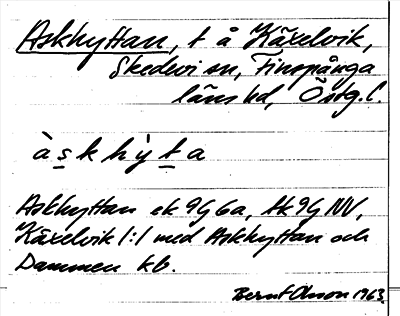 Askhyttan, t å Käxelvik,
Skedevi sn, Finspånga
läns hd, Östg. l.
à s̲ k h ỳ t̲ a
Askhyttan ek 9G 6a, tk 9G NV,
Käxelvik 1:1 med Askhyttan och
Dammen kb.
Bernt Olsson 1963.